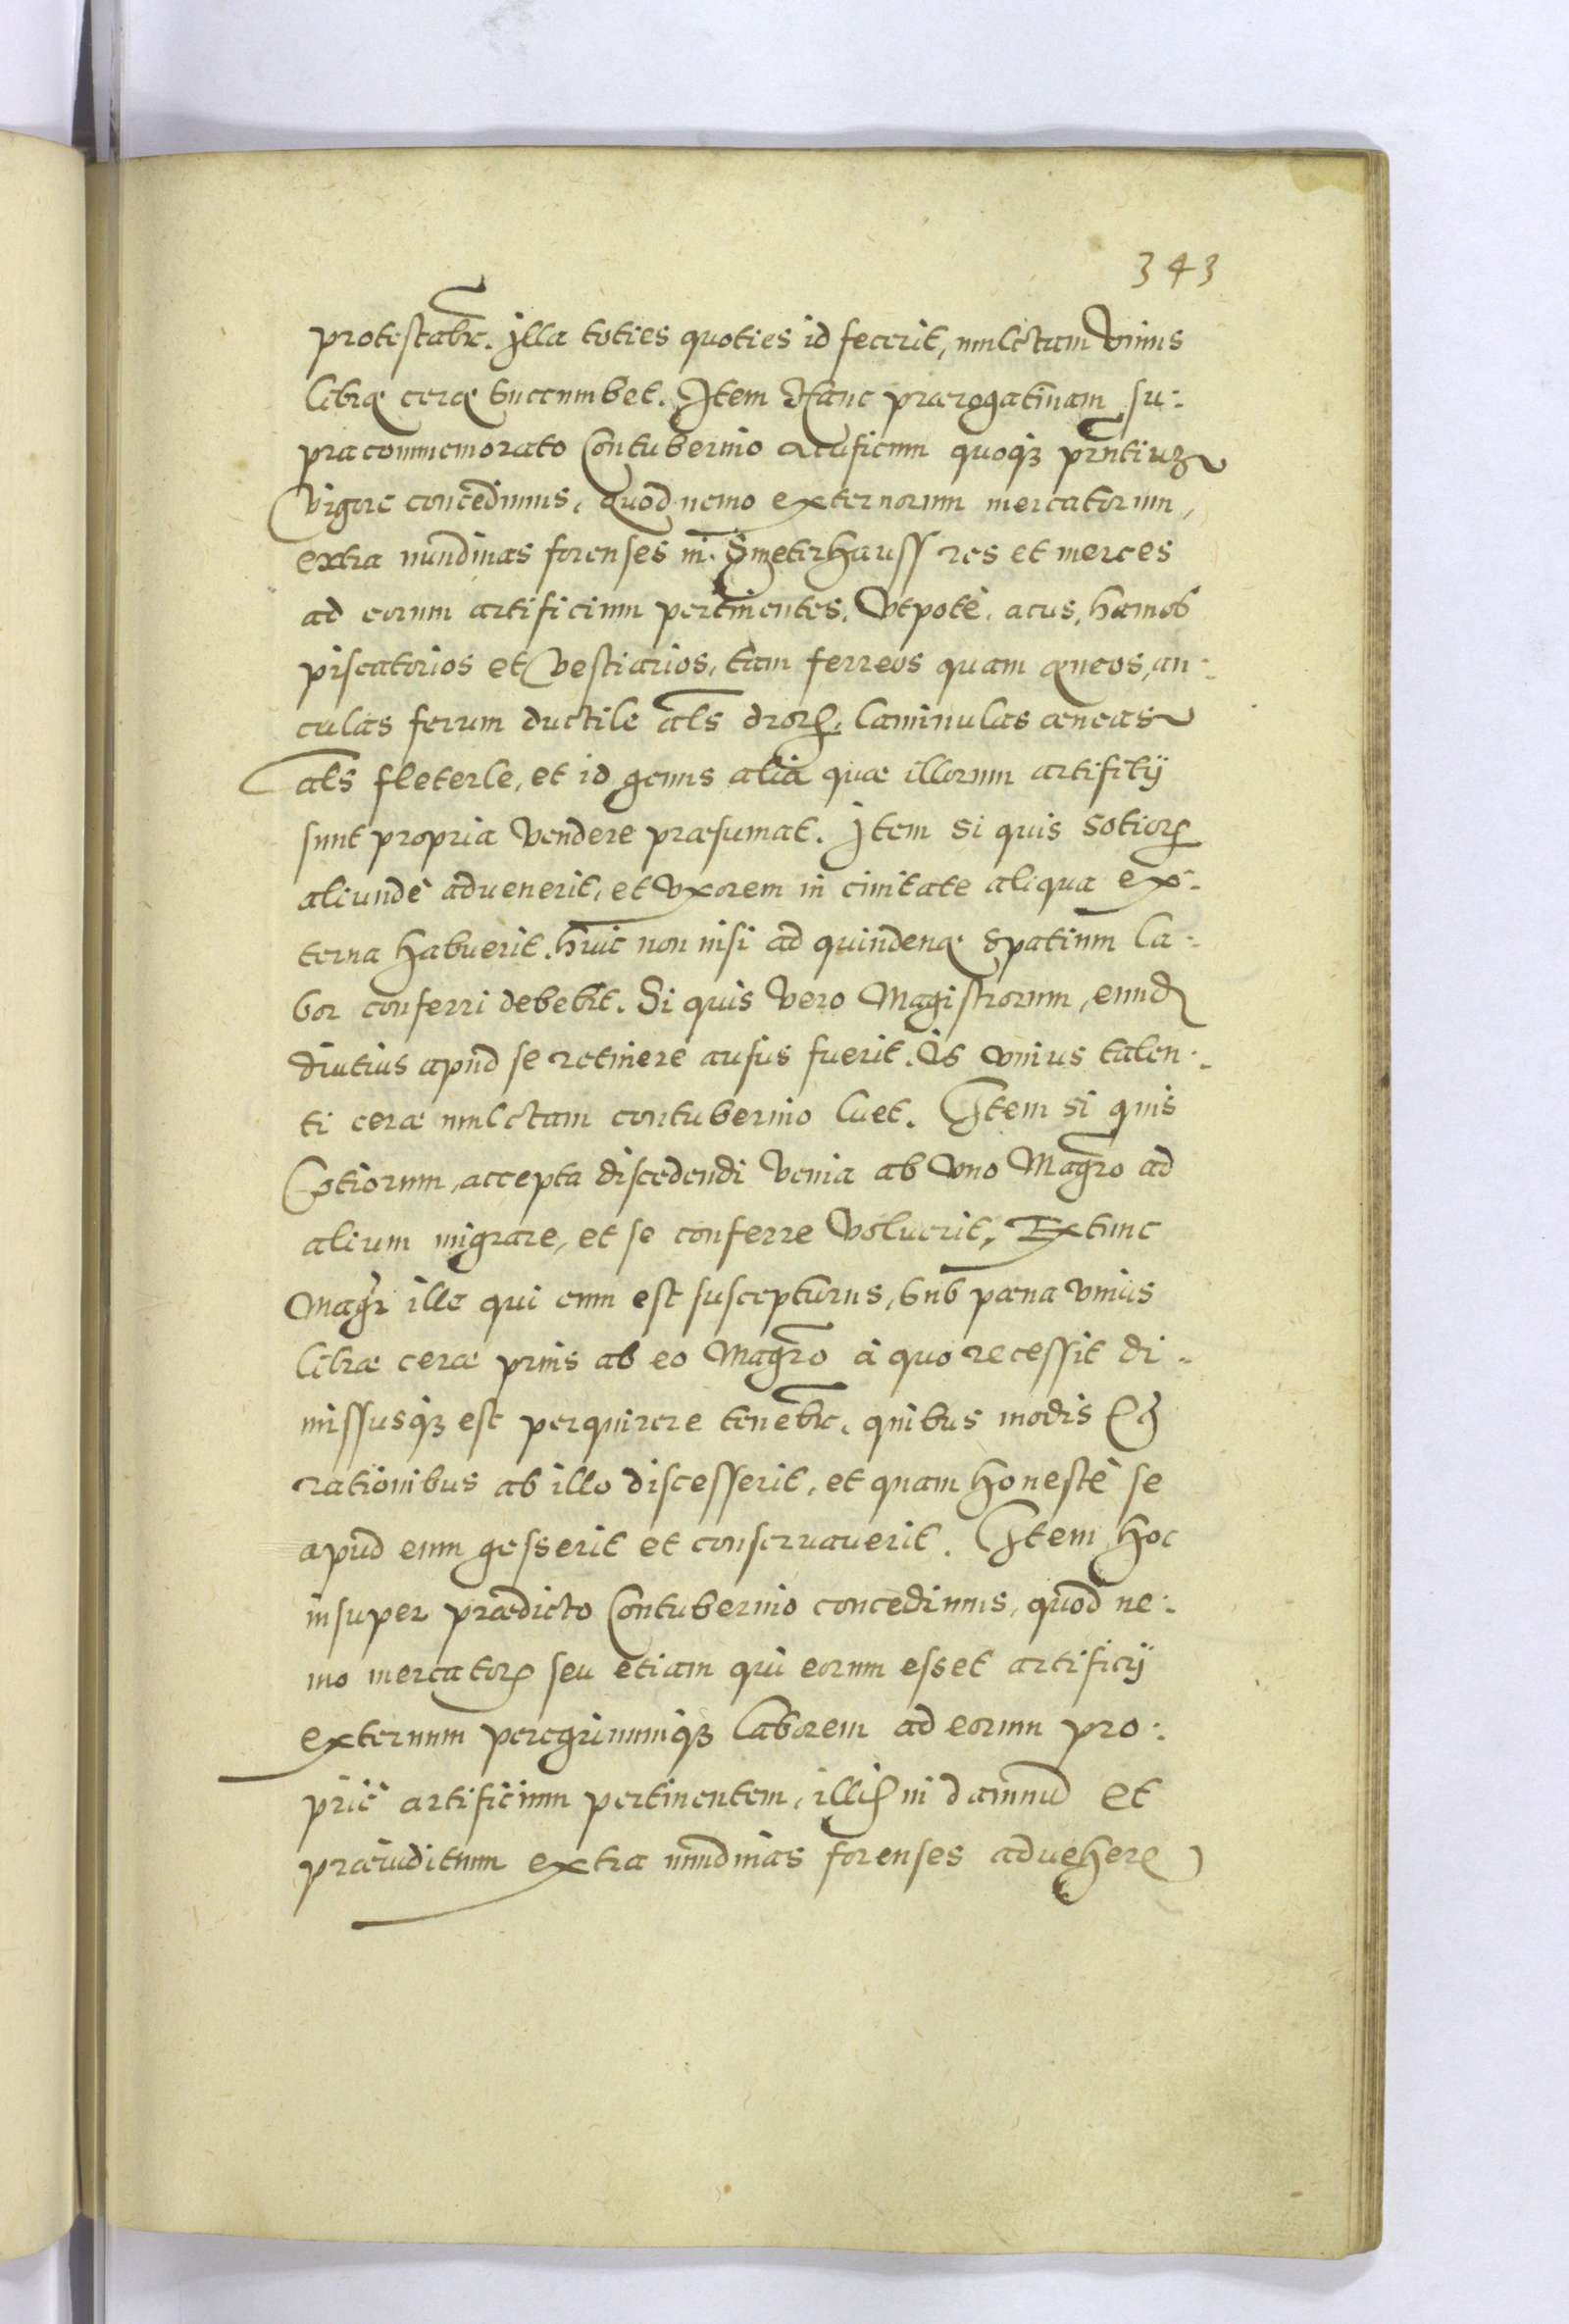 343
protestabr. Illa toties quoties id fecerit, mulctam vnius
libræ ceræ succumbet. Item Hanc prærogatiuam su-
pra commemorato Contubernio acuficum quoq3 prntiu3
vigore concedimus, quod nemo externorum mercatorum,
extra nundinas forenses in Smeterhauss res et merces
ad eorum artificium pertinentes. Vtpotè. acus, hamos
piscatorios et vestiarios, tam ferreos quam æneos, an-
culas ferum ductile als laminulas æneas
als fleterle, et id genus alia quæ illorum artifitij
sunt propria vendere præsumat. Item si quis sotior
aliundè aduenerit, et vxorem in ciuitate aliqua ex-
terna habuerit. huic non nisi ad quindenæ spatium la-
bor conferri debebit. Si quis vero Magistrorum, eund
diutius apud se retinere ausus fuerit. Is vnius talen-
ti ceræ mulctam contubernio luet. Item si quis
Sotiorum, accepta discedendi venia ab vno Magro ad
alium migrare, et se conferre voluerit, Extunc
Magr ille qui eum est suscepturus, sub pæna vnius
libræ ceræ prius ab eo Magro à quo recessit di-
missusq3 est perquirere tenebr. quibus modis &
rationibus ab illo discesserit, et quam honestè se
apud eum gesserit et conseruauerit. Item hoc
insuper prædicto Contubernio concedimus, quod ne-
mo mercator seu etiam qui eorum esset artificij
externum peregrinumq3 laborem ad eorum pro-
priè artificium pertinentem, illis in damnu et
præiuditium extra nundinas forenses aduehere